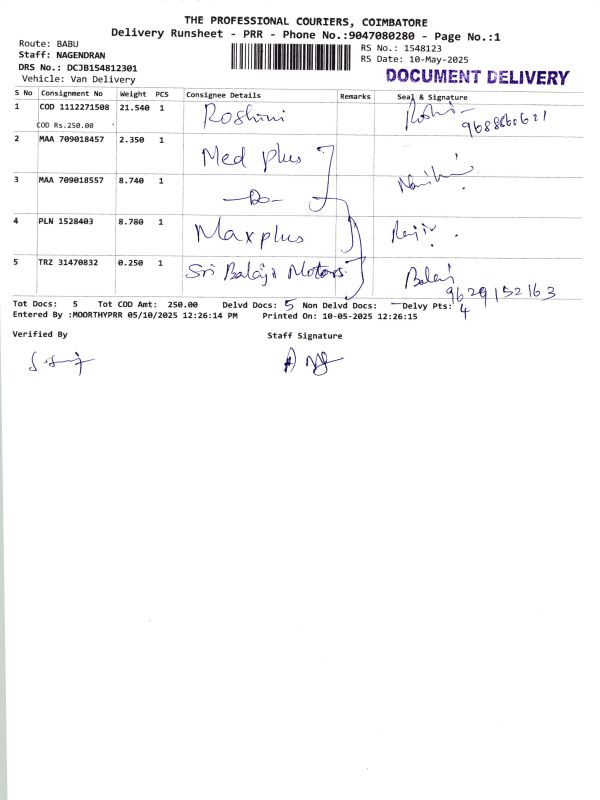 THE PROFESSIONAL COURIERS, COIMBATORE
Delivery Runsheet - PRR - Phone No.:9047080280 - Page No.:1
Route: BABU
Staff: NAGENDRAN
DRS No.: DCJB154812301
Vehicle: Van Delivery
RS No.: 1548123
RS Date: 10-May-2025
DOCUMENT DELIVERY
S No Consignment No Weight PCS Consignee Details Remarks Seal & Signature
1 COD 1112271508 21.540 1 Roshini Roshi
COD Rs.250.00 9688660621
2 MAA 709018457 2.350 1 Med plus
3 MAA 709018557 8.740 1 —Do—
4 PLN 1528403 8.780 1 Maxplus
5 TRZ 31470832 0.250 1 Sri Balaji Motors Balaji
9629152163
Tot Docs: 5 Tot COD Amt: 250.00 Delvd Docs: 5 Non Delvd Docs: — Delvy Pts: 4
Entered By :MOORTHYPRR 05/10/2025 12:26:14 PM Printed On: 10-05-2025 12:26:15
Verified By Staff Signature